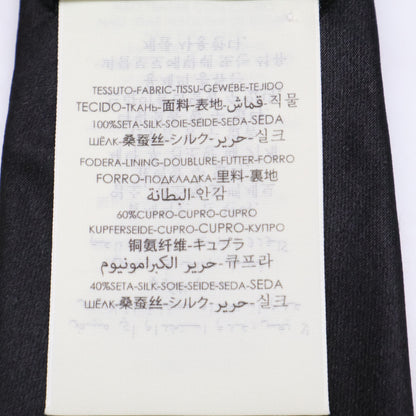 TESSUTO-FABRIC-TISSU-GEWEBE-TEJIDO
TECIDO-ТКАНЬ-面料-表地-قماش-직물
100%SETA-SILK-SOIE-SEIDE-SEDA-SEDA
ШЁЛК-桑蚕丝-シルク-حرير-실크
FODERA-LINING-DOUBLURE-FUTTER-FORRO
FORRO-ПОДКЛАДКА-里料-裏地
البطانة-안감
60%CUPRO-CUPRO-CUPRO
KUPFERSEIDE-CUPRO-CUPRO-КУПРО
铜氨纤维-キュプラ
حرير الكبرامونيوم-큐프라
40%SETA-SILK-SOIE-SEIDE-SEDA-SEDA
ШЁЛК-桑蚕丝-シルク-حرير-실크